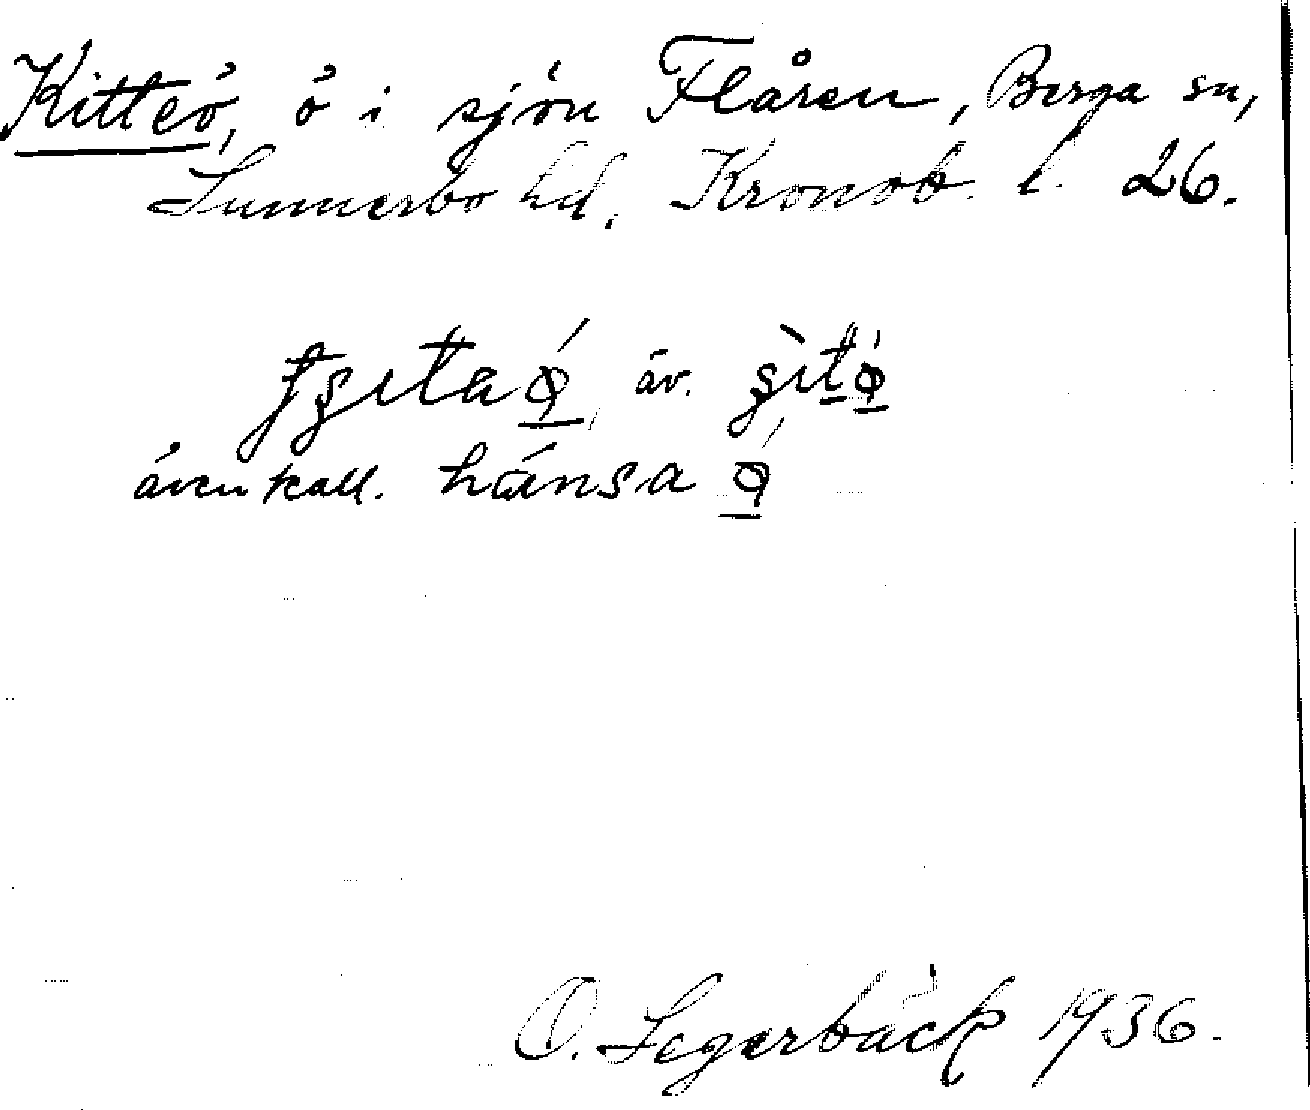 Kitteö, ö i sjön Flåren, Berga sn,
Sunnerbo hd, Kronob. l. 26.
äv.
även kall. hánsa
O. Segerbäck 1936.